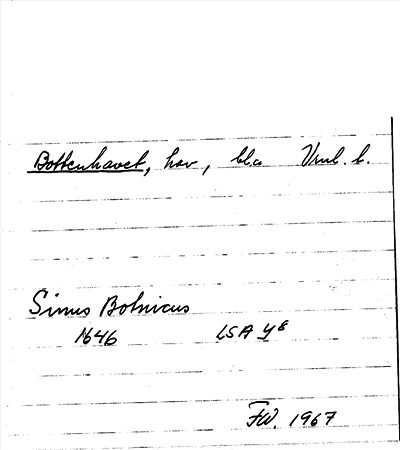 Bottenhavet, hav, bl.a Vrml. l.
Sinus Botnicus
1646 LSA Y⁸
FW. 1967